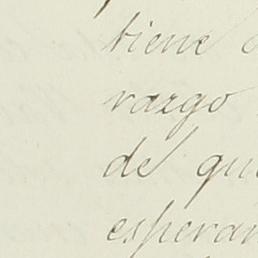 tiene
vazgo
de qu
esperan